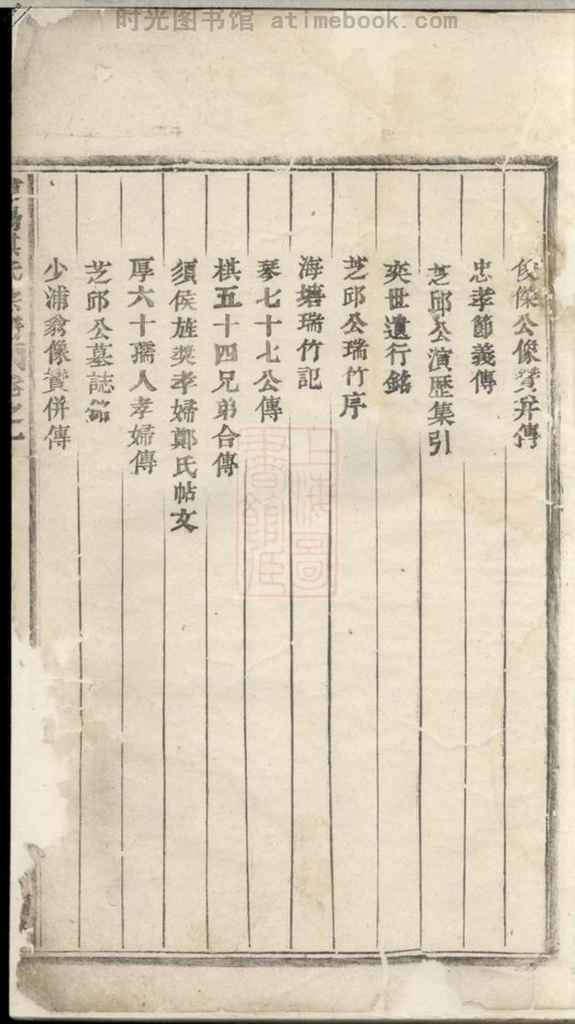 时光图书馆 atimebook.com
俊傑公像贊并傳
忠孝節義傳
芝邱公演歷集引
奕世遺行銘
芝邱公瑞竹序
海塘瑞竹記
琴七十七公傳
棋五十四兄弟合傳
須侯旌奬孝婦鄭氏帖文
厚六十孺人孝婦傳
芝邱公墓誌銘
少浦翁像贊併傳
上海圖書館藏